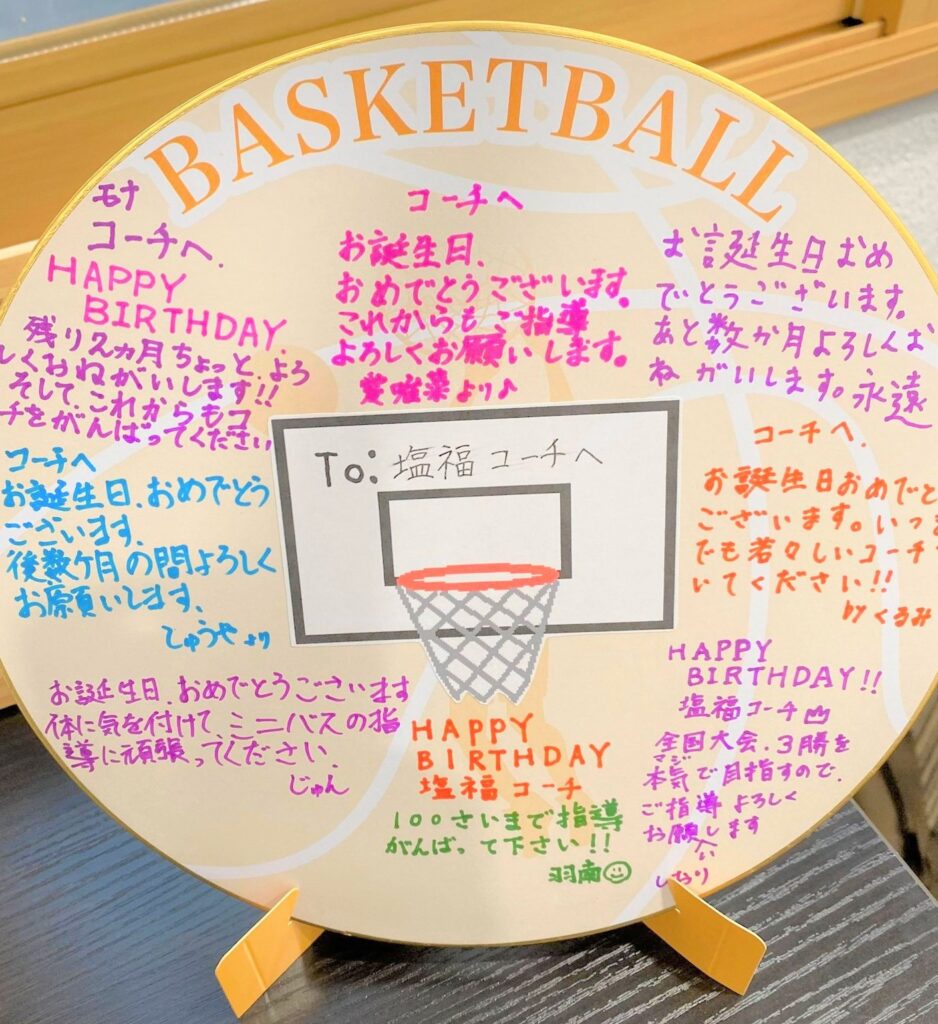 BASKETBALL
モナ
コーチへ.
HAPPY
BIRTHDAY.
残り2ヵ月ちょっと、よろ
しくおねがいします!!
そして、これからもコ
ーチをがんばってください
コーチへ
お誕生日、
おめでとうございます。
これからもご指導
よろしくお願いします。
愛唯菜より♪
お誕生日おめ
でとうございます。
あと数か月よろしくお
ねがいします。永遠
To:塩福コーチへ
コーチへ
お誕生日、おめでとう
ございます、
後数ケ月の間よろしく
お願いします、
しゅうやより
コーチへ.
お誕生日おめでと
ございます。いつま
でも若々しいコーチ
いてください!!
by くるみ
お誕生日、おめでとうございます
体に気を付けて、ミニバスの指
導に頑張ってください、
じゅん
HAPPY
BIRTHDAY
塩福コーチ
100さいまで指導
がんばって下さい!!
羽南
HAPPY
BIRTHDAY!!
塩福コーチ
全国大会、3勝を
マジ
本気で目指すので、
ご指導よろしく
お願いします
しおり